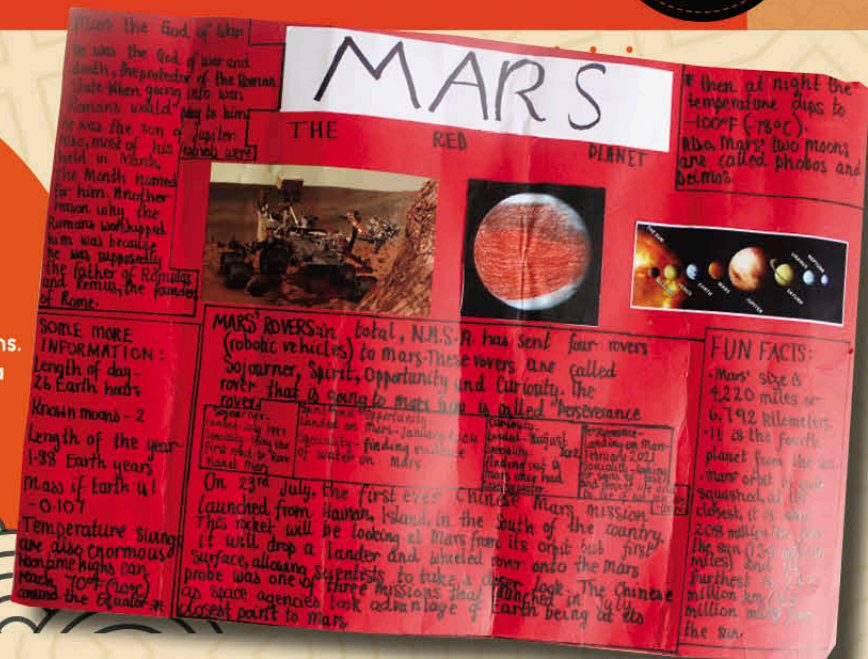 Mars the God of War
He was the God of war and
death, the protector of the Roman
State When going into war
Romans would pray to him
he was the son of Jupiter
Also, most of his festivals were
held in March,
the Month named
for him. Another
reason why the
Romans worshipped
him was because
he was supposedly
the father of Romulus
and Remus, the founders
of Rome.
MARS
THE RED PLANET
* then at night the
temperature dips to
-100°F (-78°C).
Also, Mars' two moons
are called phobos and
Deimos.
THE SUN
EARTH
MARS
JUPITER
SATURN
URANUS
NEPTUNE
ns.
a
SOME MORE
INFORMATION:
Length of day-
26 Earth hours
Known moons - 2
Length of the year-
1.88 Earth years
Mass if Earth is 1
- 0.107
Temperature swings
are also enormous
Noontime highs can
reach, 70°F (20°C)
around the Equator *
MARS' ROVERS: in total, N.A.S.A. has sent four rovers
(robotic vehicles) to Mars. These rovers are called
Sojourner, Spirit, Opportunity and Curiosity. The
rover that is going to mars now is called Perseverance
rovers
Sojourner-
Landed-July 1997
Speciality-
first robot to
Planet Mars
Spirit and Opportunity
Landed on Mars-January 2004
Speciality - finding evidence
of water on Mars
Curiosity-
Landed-August
Speciality- 2012
finding out if
Mars once had
Perseverance-
Landing on Mars-
February 2021
Speciality-looking
for signs of past
and present life
On 23rd July, the first ever Chinese Mars mission
launched from Hainan, Island, in the South of the country.
This rocket will be looking at Mars from its orbit but first
it will drop a lander and wheeled rover onto the Mars
surface, allowing scientists to take a closer look. The Chinese
probe was one of three missions that launched in July
as space agencies took advantage of Earth being at its
closest point to Mars
FUN FACTS:
• Mars' size is
4,220 miles or
6,792 kilometers
• It is the fourth
planet from the sun
• mars' orbit is quite
squashed, at its
closest, it is
208 million km from
the sun (129 million
miles) and its
furthest is
million km
million miles from
the sun.